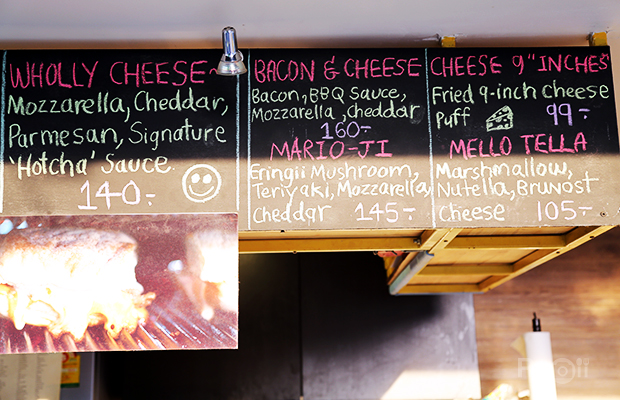 WHOLLY CHEESE~
Mozzarella, Cheddar,
Parmesan, Signature
'Hotcha' Sauce.
140.-
BACON & CHEESE
Bacon, BBQ Sauce,
Mozzarella, Cheddar
160.-
MARIO-JI
Eringii Mushroom,
Teriyaki, Mozzarella,
Cheddar 145.-
CHEESE 9" INCHES
Fried 9-inch cheese
Puff 99.-
MELLO TELLA
Marshmallow,
Nutella, Brunost
Cheese 105.-